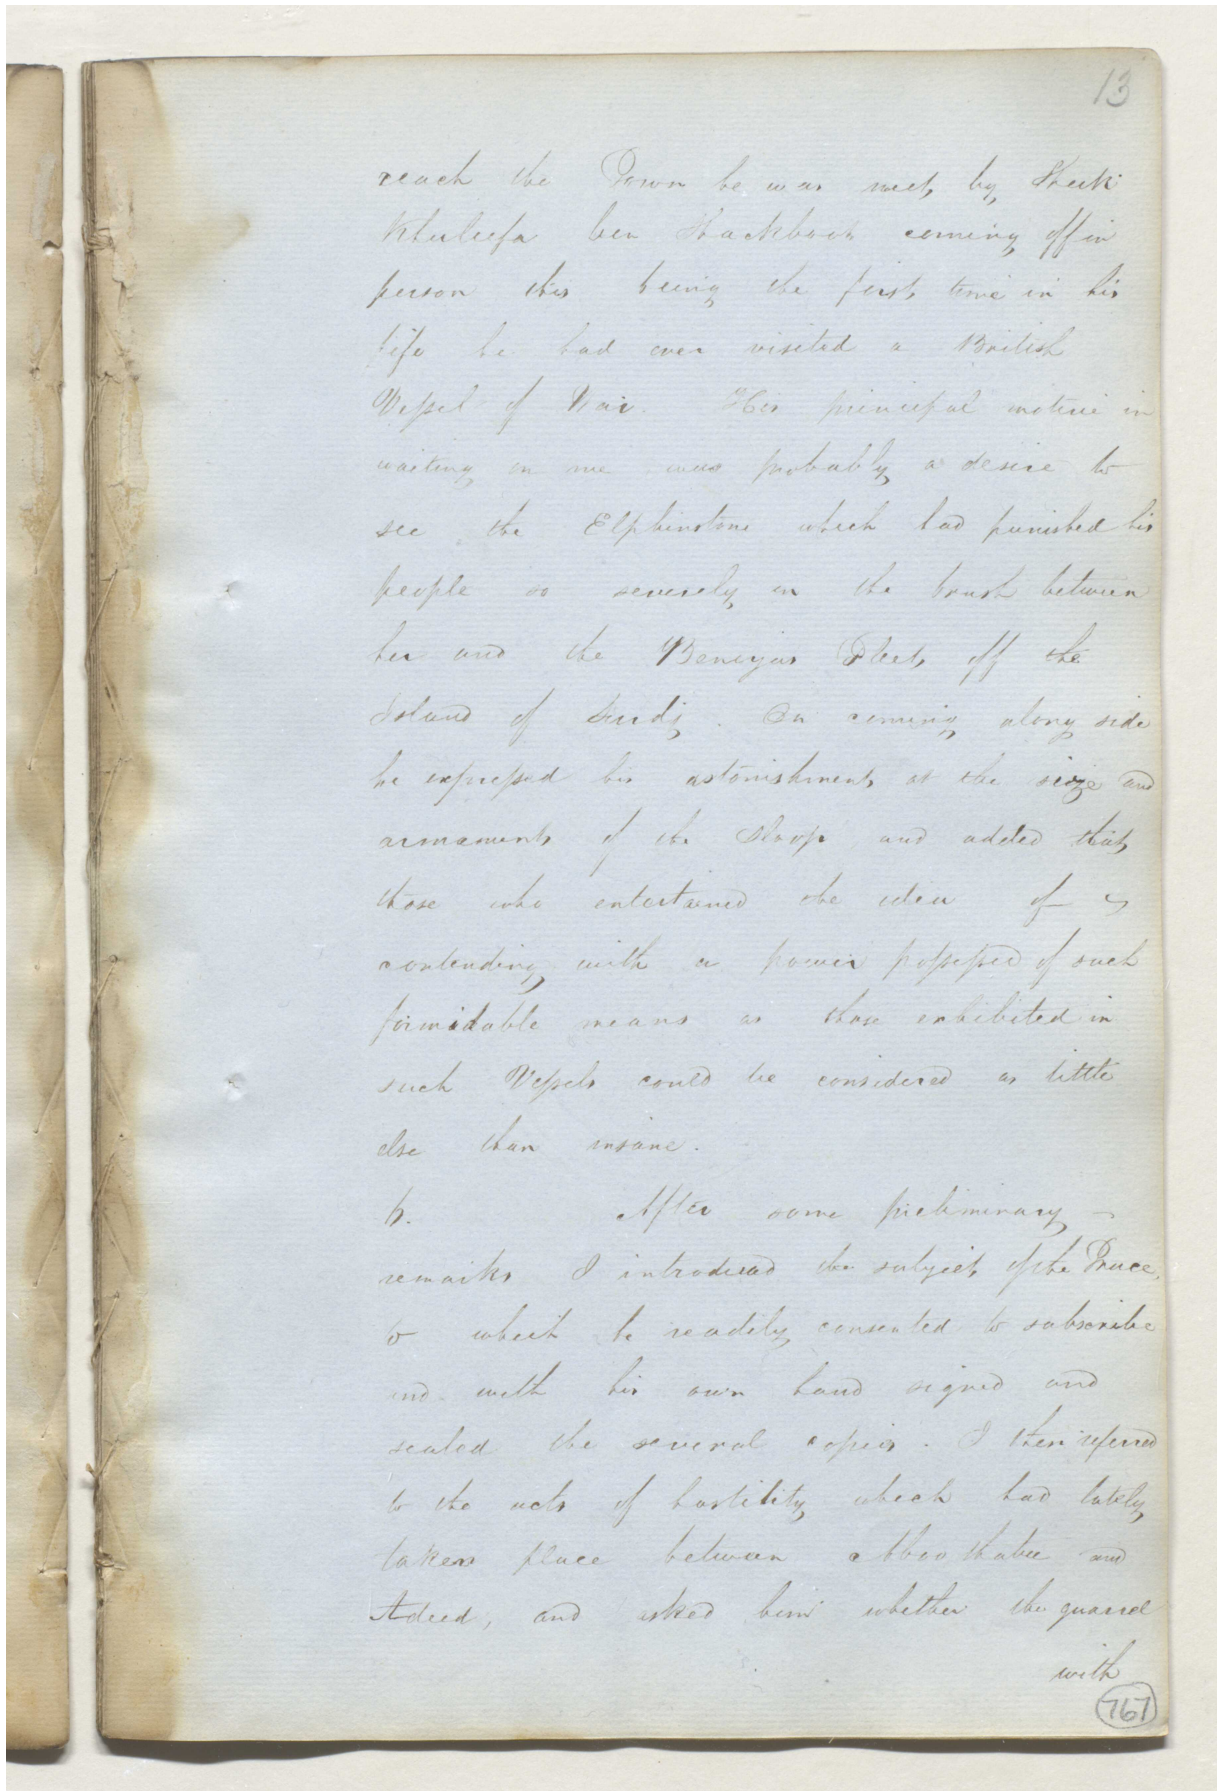 13
reach the Town he was met, by, Sheik
Khuleefa ben Shackboot coming off in
person this being the first time in his
life he had ever visited a British
Vessel of War. His principal motive in
waiting on me was probably a desire to
see the Elphinstone which had punished his
people so severely in the brush between
her and the Beniyas Fleet, off the
Island of Surdy. On coming along side
he expressed his astonishment at the size and
armament of the Sloop and added that,
those who entertained the idea of
contending with a power possessed of such
formidable means as those exhibited in
such Vessels could be considered as little
else than insane.
6. After some preliminary
remarks I introduced the subject of the Truce,
to which he readily consented to subscribe
and with his own hand signed and
sealed the several copies. I then referred
to the acts of hostility which had lately
taken place between Aboothabee and
Adeed, and asked him whether the quarrel
with
767